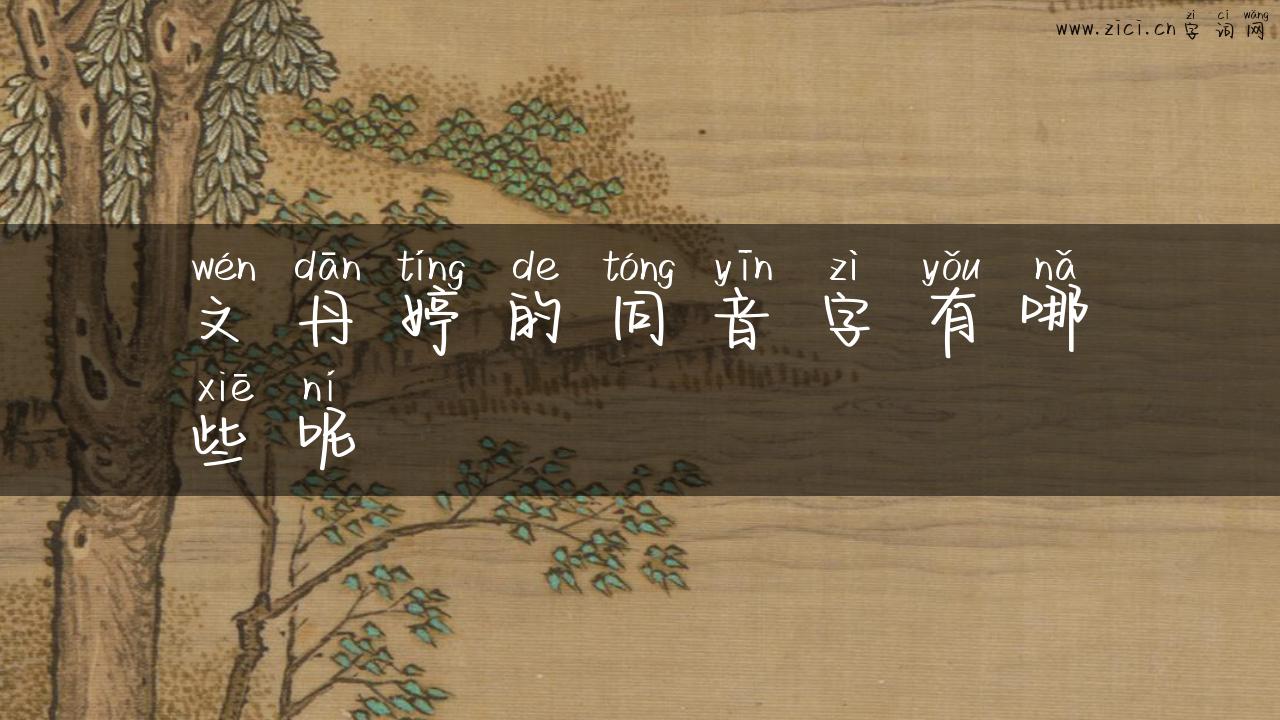 zì cí wǎng
www.zici.cn 字 词 网
wén dān tíng de tóng yīn zì yǒu nǎ
文 丹 婷 的 同 音 字 有 哪
xiē ní
些 呢